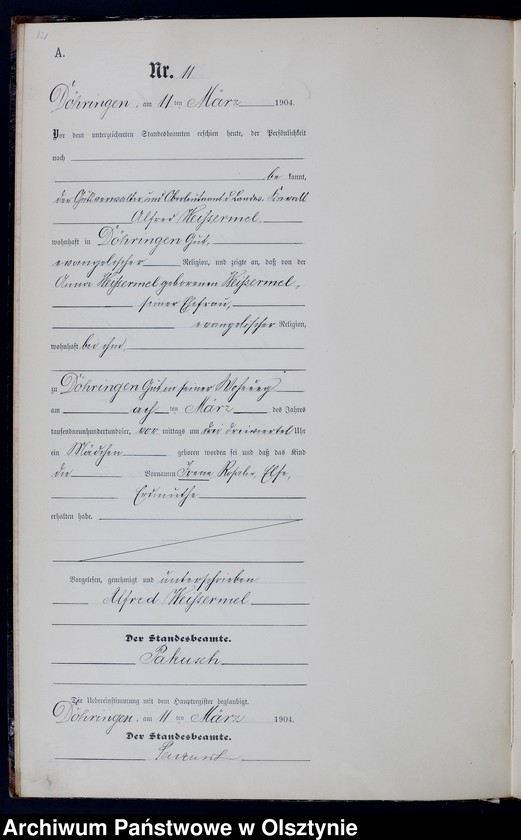 A.
Nr. 11
Döhringen, am 11ten März 1904.
Vor dem unterzeichneten Standesbeamten erschien heute, der Persönlichkeit
nach
be kannt,
der Gutsverwalter und Oberleutnant d. Landw. Kavall
Alfred Weissermel
wohnhaft in Döhringen Gut,
evangelischer Religion, und zeigte an, daß von der
Anna Weissermel geborenen Weissermel,
seiner Ehefrau,
evangelischer Religion,
wohnhaft bei ihm,
zu Döhringen Gut in seiner Wohnung
am ach ten März des Jahres
tausendneunhundertundvier, vor mittags um drei dreiviertel Uhr
ein Mädchen geboren worden sei und daß das Kind
die Vornamen Irene Rosalie, Else,
Erdmuthe
erhalten habe.
Vorgelesen, genehmigt und unterschrieben
Alfred Weissermel
Der Standesbeamte.
Pakusch
Die Uebereinstimmung mit dem Hauptregister beglaubigt.
Döhringen, am 11ten März 1904.
Der Standesbeamte.
Archiwum Państwowe w Olsztynie